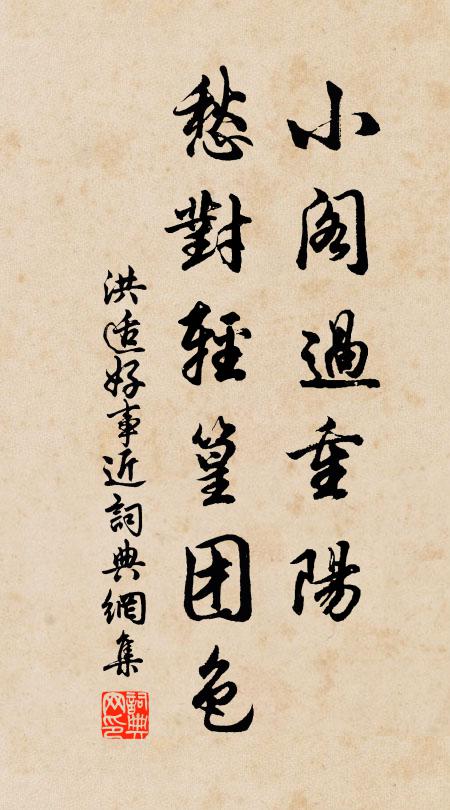 小閣過重陽
愁對輕篁团色
洪适好事近詞典網集
詞典网印